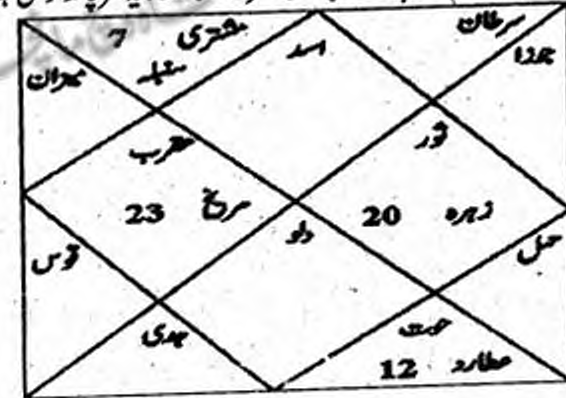 7 مشتری
سنبلہ
میزان
اسد
سرطان
جوزا
عقرب
23 مریخ
ثور
20 زہرہ
دلو
قوس
حمل
جدی
حوت
12 عطارد